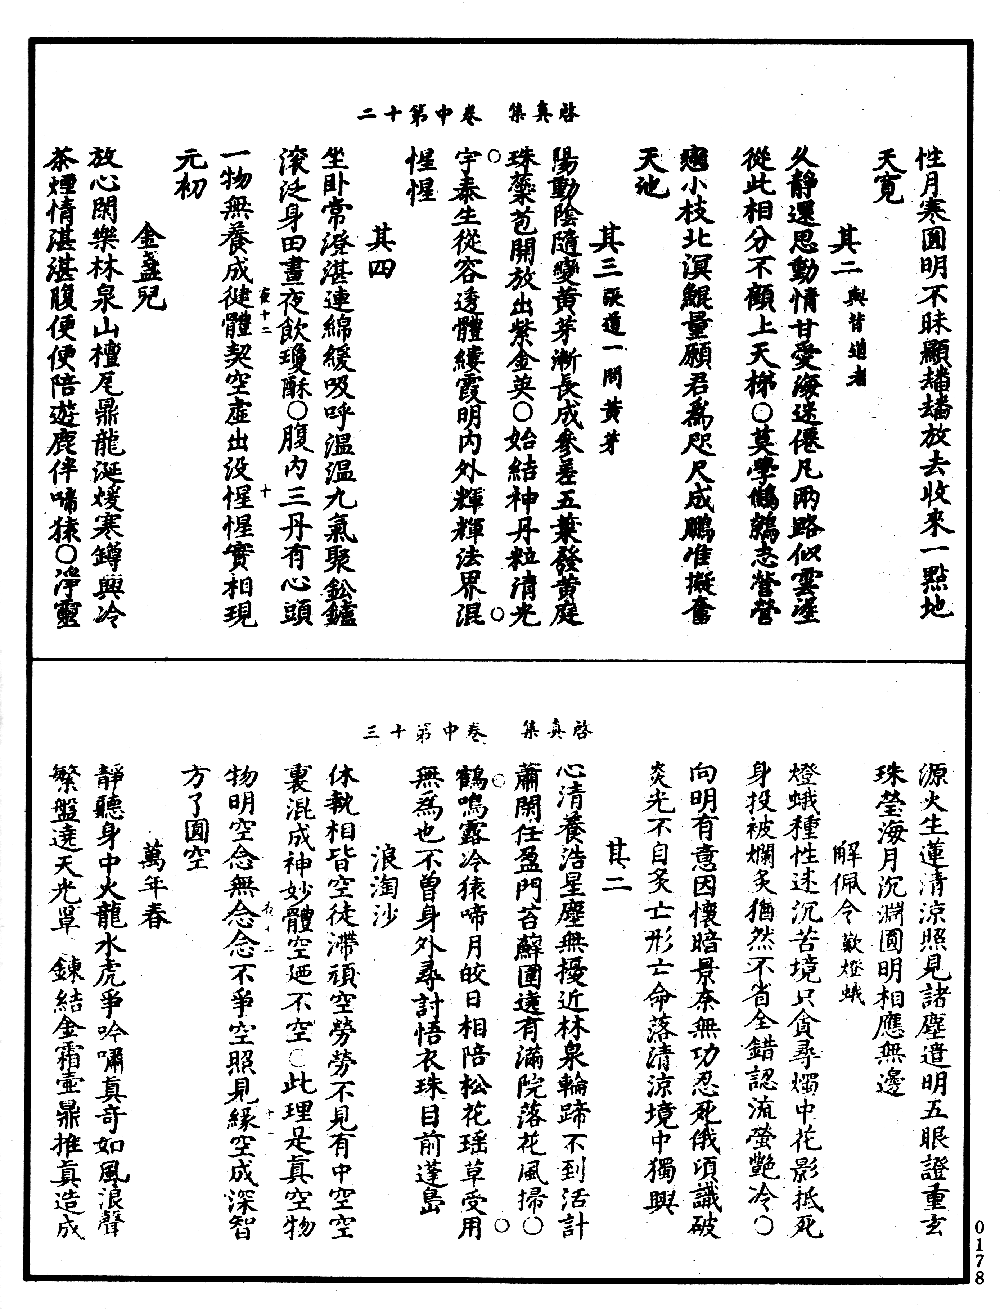 啓眞集　卷中第十二
性月寒圓明不昧顯皤皤放去收來一點地
天寬
其二 與昔道者
久靜還思動情甘愛海迷僊凡兩路似雲淫
從此相分不顧上天梯〇莫學鷦鷯志營營
戀小枝北溟鯤量願君爲咫尺成鵬准擬奮
天池
其三 張道一問黃芽
陽動陰隨變黃芽漸長成參差五葉發黃庭
珠蘂苞開放出紫金英〇始結神丹粒清光
宇泰生從容透體縷霞明内外輝輝法界混
惺惺
其四
坐卧常澄湛連綿緩吸呼溫溫九氣聚鈆鑪
滚泛身田晝夜飲瓊酥〇腹内三丹有心頭
一物無養成健體契空虛出没惺惺實相現
元初
金盞兒
放心閑樂林泉山檀尾鼎龍涎煖寒鐏興冷
茶煙情湛湛腹便便陪遊鹿伴啼猿〇淨靈
啓眞集　卷中第十三
源火生蓮清涼照見諸塵遣明五眼證重玄
珠瑩海月沉淵圓明相應無邊
解佩令 歎燈蛾
燈蛾種性迷沉苦境只貪尋燭中花影抵死
身投被爛炙猶然不省全錯認流螢艷冷〇
向明有意因懷暗景奈無功忍死俄頃識破
炎光不自炙亡形亡命落清涼境中獨興
其二
心清養浩星塵無擾近林泉輪蹄不到活計
蕭閑任盈門苔蘚圍遶有滿院落花風掃〇
鶴鳴露冷猿啼月皎日相陪松花瑶草受用
無爲也不曽身外尋討悟衣珠目前蓬島
浪淘沙
休執相皆空徒滯頑空勞勞不見有中空空
裏混成神妙體空廼不空〇此理是眞空物
物明空念無念念不爭空照見緣空成深智
方了圓空
萬年春
靜聽身中火龍水虎爭吟嘯眞竒如風浪聲
繁盤遶天光罩　鍊結金霜壷鼎推眞造成
0178